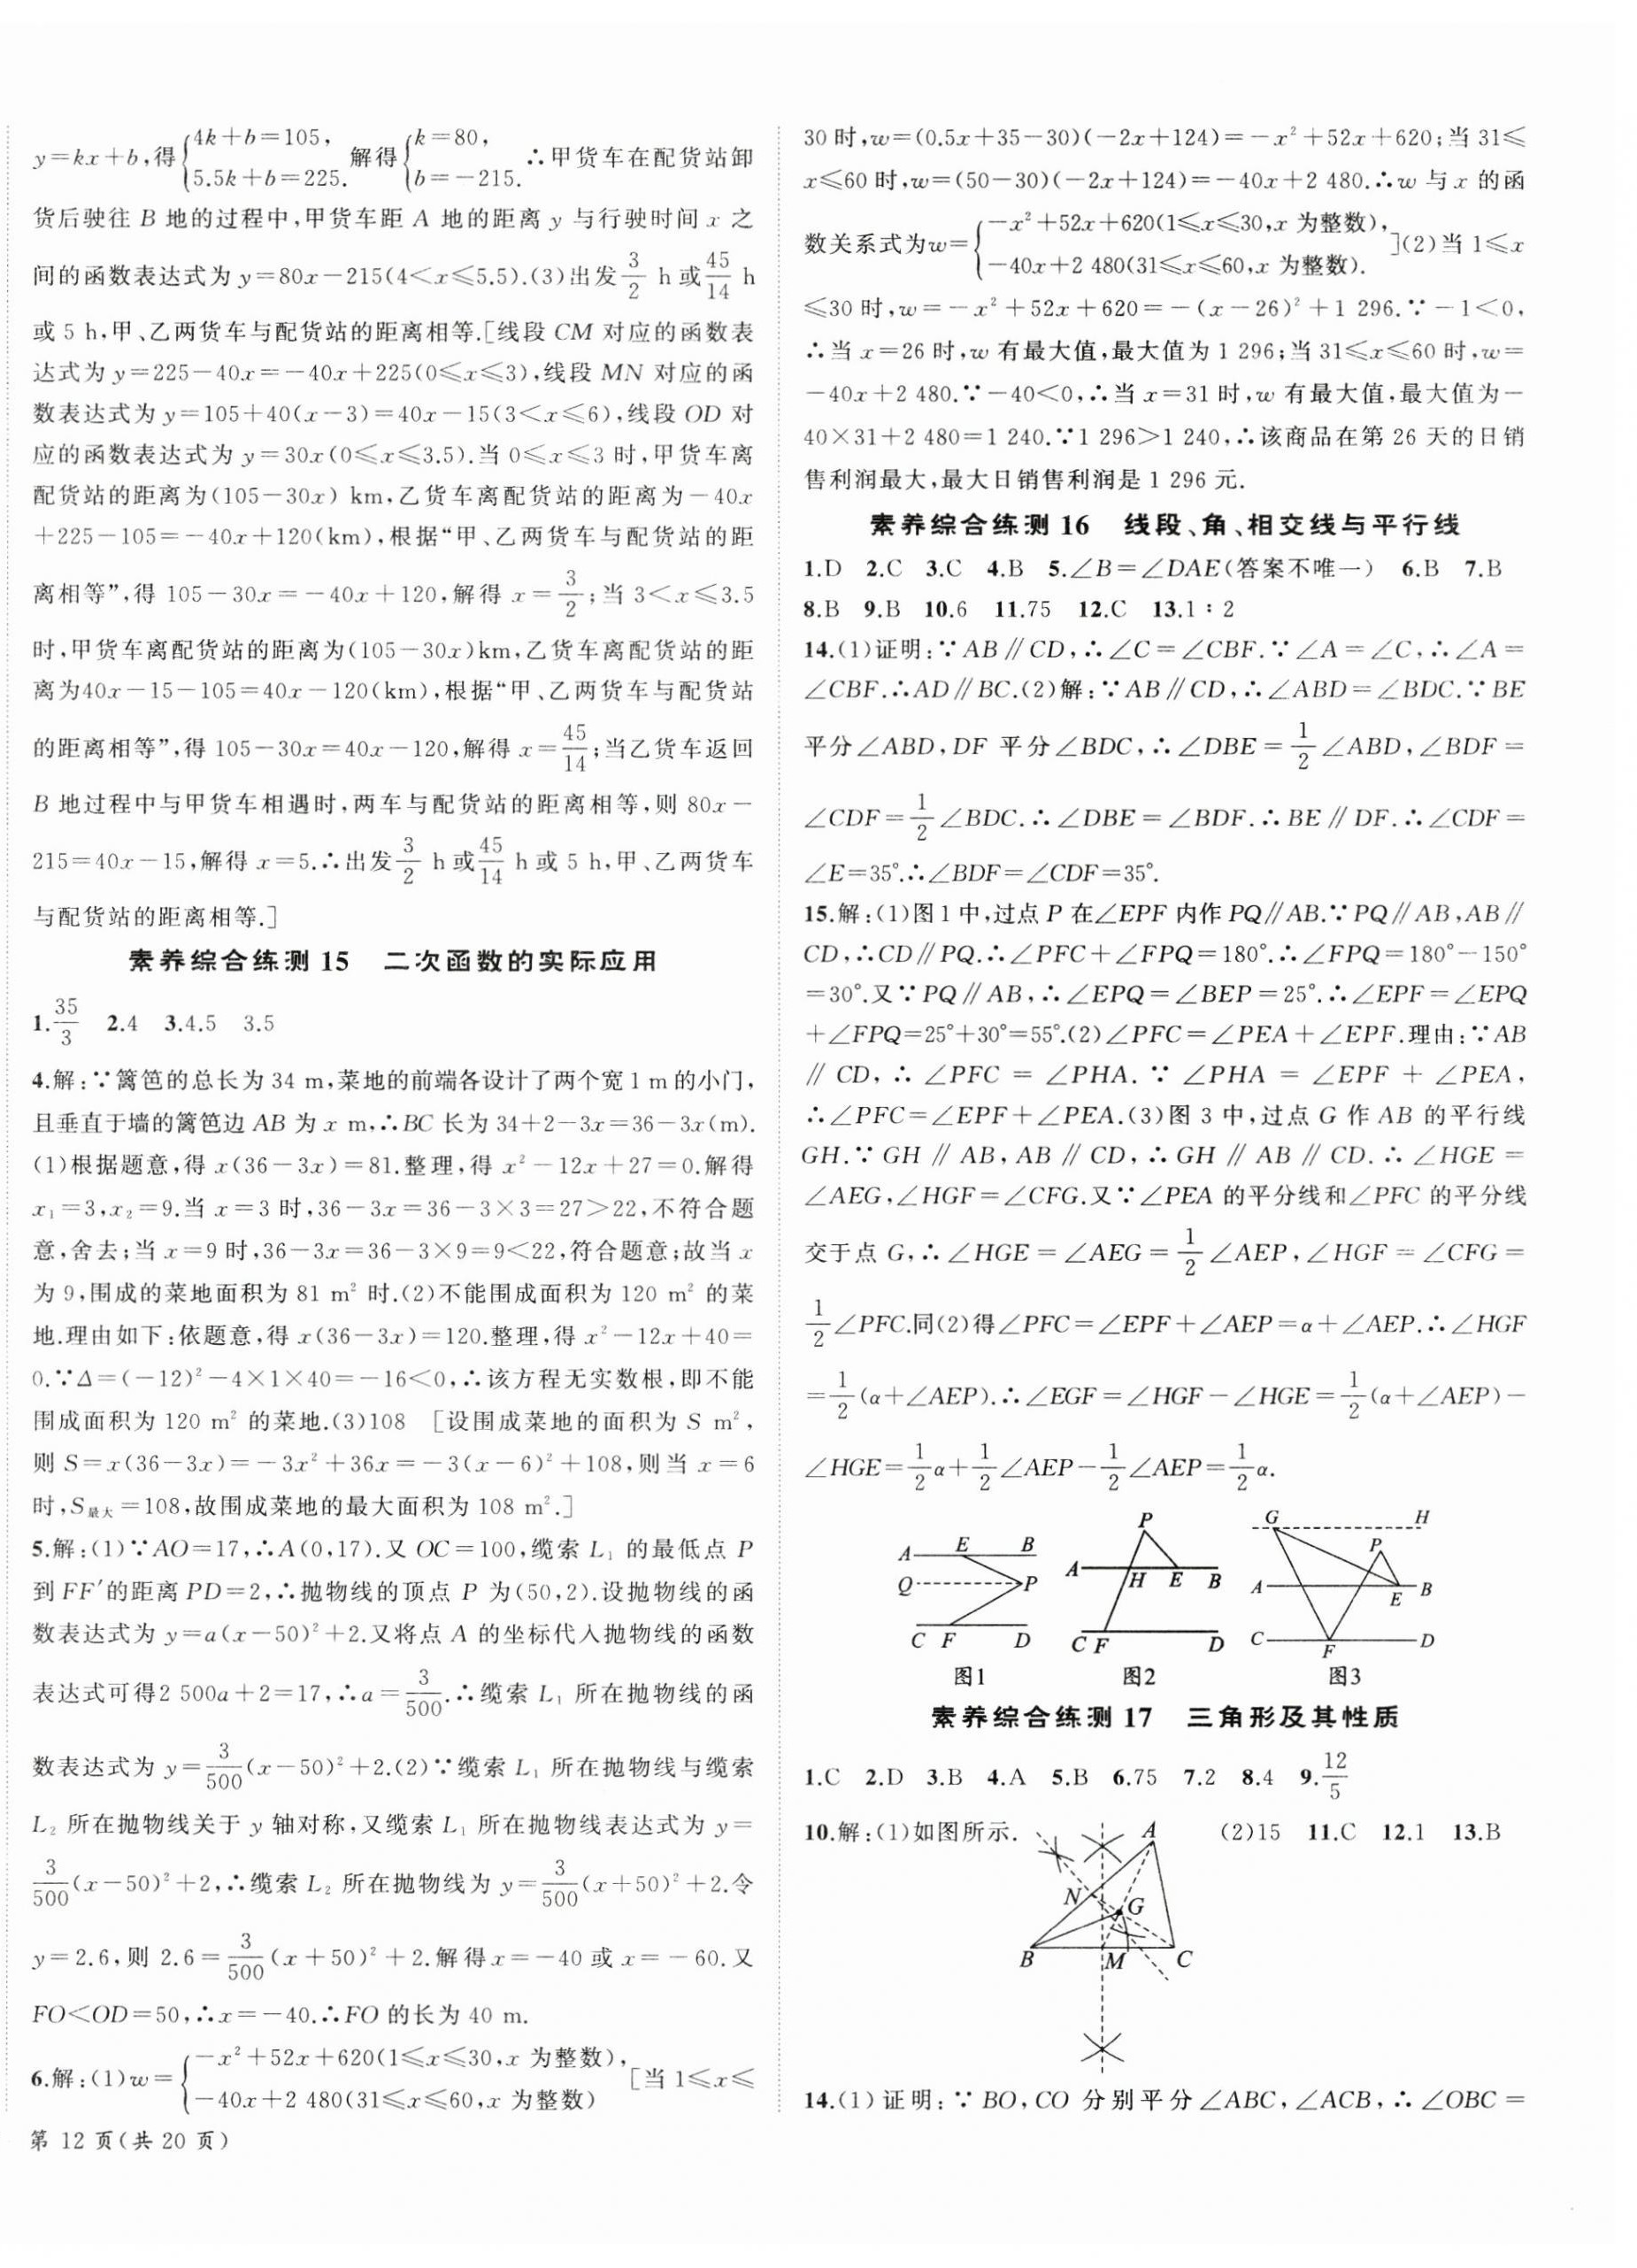 y=kx+b,得{4k+b=105, 5.5k+b=225. 解得{k=80, b=-215. ∴甲货车在配货站卸
货后驶往 B 地的过程中,甲货车距 A 地的距离 y 与行驶时间 x 之
间的函数表达式为 y=80x-215(4<x≤5.5).(3)出发 3/2 h 或 45/14 h
或 5 h,甲、乙两货车与配货站的距离相等.[线段 CM 对应的函数表
达式为 y=225-40x=-40x+225(0≤x≤3),线段 MN 对应的函
数表达式为 y=105+40(x-3)=40x-15(3<x≤6),线段 OD 对
应的函数表达式为 y=30x(0≤x≤3.5).当 0≤x≤3 时,甲货车离
配货站的距离为(105-30x) km,乙货车离配货站的距离为-40x
+225-105=-40x+120(km),根据“甲、乙两货车与配货站的距
离相等”,得 105-30x=-40x+120,解得 x=3/2;当 3<x≤3.5
时,甲货车离配货站的距离为(105-30x)km,乙货车离配货站的距
离为40x-15-105=40x-120(km),根据“甲、乙两货车与配货站
的距离相等”,得 105-30x=40x-120,解得 x=45/14;当乙货车返回
B 地过程中与甲货车相遇时,两车与配货站的距离相等,则 80x-
215=40x-15,解得 x=5.∴出发 3/2 h 或 45/14 h 或 5 h,甲、乙两货车
与配货站的距离相等.]
素养综合练测 15 二次函数的实际应用
1.35/3 2.4 3.4.5 3.5
4.解:∵篱笆的总长为 34 m,菜地的前端各设计了两个宽 1 m 的小门,
且垂直于墙的篱笆边 AB 为 x m,∴BC 长为 34+2-3x=36-3x(m).
(1)根据题意,得 x(36-3x)=81.整理,得 x²-12x+27=0.解得
x₁=3,x₂=9.当 x=3 时,36-3x=36-3×3=27>22,不符合题
意,舍去;当 x=9 时,36-3x=36-3×9=9<22,符合题意;故当 x
为 9,围成的菜地面积为 81 m² 时.(2)不能围成面积为 120 m² 的菜
地.理由如下:依题意,得 x(36-3x)=120.整理,得 x²-12x+40=
0.∵Δ=(-12)²-4×1×40=-16<0,∴该方程无实数根,即不能
围成面积为 120 m² 的菜地.(3)108 [设围成菜地的面积为 S m²,
则 S=x(36-3x)=-3x²+36x=-3(x-6)²+108,则当 x=6
时,S最大=108,故围成菜地的最大面积为 108 m².]
5.解:(1)∵AO=17,∴A(0,17).又 OC=100,缆索 L₁ 的最低点 P
到 FF′的距离 PD=2,∴抛物线的顶点 P 为(50,2).设抛物线的函
数表达式为 y=a(x-50)²+2.又将点 A 的坐标代入抛物线的函数
表达式可得2 500a+2=17,∴a=3/500.∴缆索 L₁ 所在抛物线的函
数表达式为 y=3/500(x-50)²+2.(2)∵缆索 L₁ 所在抛物线与缆索
L₂ 所在抛物线关于 y 轴对称,又缆索 L₁ 所在抛物线表达式为 y=
3/500(x-50)²+2,∴缆索 L₂ 所在抛物线为 y=3/500(x+50)²+2.令
y=2.6,则 2.6=3/500(x+50)²+2.解得x=-40 或 x=-60.又
FO<OD=50,∴x=-40.∴FO 的长为 40 m.
6.解:(1)w={-x²+52x+620(1≤x≤30,x 为整数), -40x+2 480(31≤x≤60,x 为整数) [当 1≤x≤
第 12 页(共 20 页)
30 时,w=(0.5x+35-30)(-2x+124)=-x²+52x+620;当 31≤
x≤60 时,w=(50-30)(-2x+124)=-40x+2 480.∴w 与 x 的函
数关系式为w={-x²+52x+620(1≤x≤30,x 为整数), -40x+2 480(31≤x≤60,x 为整数). ](2)当 1≤x
≤30 时,w=-x²+52x+620=-(x-26)²+1 296.∵-1<0,
∴当 x=26 时,w 有最大值,最大值为 1 296;当 31≤x≤60 时,w=
-40x+2 480.∵-40<0,∴当 x=31 时,w 有最大值,最大值为-
40×31+2 480=1 240.∵1 296>1 240,∴该商品在第 26 天的日销
售利润最大,最大日销售利润是 1 296 元.
素养综合练测 16 线段、角、相交线与平行线
1.D 2.C 3.C 4.B 5.∠B=∠DAE(答案不唯一) 6.B 7.B
8.B 9.B 10.6 11.75 12.C 13.1∶2
14.(1)证明:∵AB∥CD,∴∠C=∠CBF.∵∠A=∠C,∴∠A=
∠CBF.∴AD∥BC.(2)解:∵AB∥CD,∴∠ABD=∠BDC.∵BE
平分∠ABD,DF 平分∠BDC,∴∠DBE=1/2∠ABD,∠BDF=
∠CDF=1/2∠BDC.∴∠DBE=∠BDF.∴BE∥DF.∴∠CDF=
∠E=35°.∴∠BDF=∠CDF=35°.
15.解:(1)图1中,过点 P 在∠EPF 内作 PQ∥AB.∵PQ∥AB,AB∥
CD,∴CD∥PQ.∴∠PFC+∠FPQ=180°.∴∠FPQ=180°-150°
=30°.又∵PQ∥AB,∴∠EPQ=∠BEP=25°.∴∠EPF=∠EPQ
+∠FPQ=25°+30°=55°.(2)∠PFC=∠PEA+∠EPF.理由:∵AB
∥CD,∴∠PFC=∠PHA.∵∠PHA=∠EPF+∠PEA,
∴∠PFC=∠EPF+∠PEA.(3)图 3 中,过点 G 作 AB 的平行线
GH.∵GH∥AB,AB∥CD,∴GH∥AB∥CD.∴∠HGE=
∠AEG,∠HGF=∠CFG.又∵∠PEA 的平分线和∠PFC 的平分线
交于点 G,∴∠HGE=∠AEG=1/2∠AEP,∠HGF=∠CFG=
1/2∠PFC.同(2)得∠PFC=∠EPF+∠AEP=α+∠AEP.∴∠HGF
=1/2(α+∠AEP).∴∠EGF=∠HGF-∠HGE=1/2(α+∠AEP)-
∠HGE=1/2α+1/2∠AEP-1/2∠AEP=1/2α.
A E B Q P C F D
P A H E B C F D
G H P A E B C F D
图1 图2 图3
素养综合练测 17 三角形及其性质
1.C 2.D 3.B 4.A 5.B 6.75 7.2 8.4 9.12/5
10.解:(1)如图所示. (2)15 11.C 12.1 13.B
A
N G
B M C
14.(1)证明:∵BO,CO 分别平分∠ABC,∠ACB,∴∠OBC=